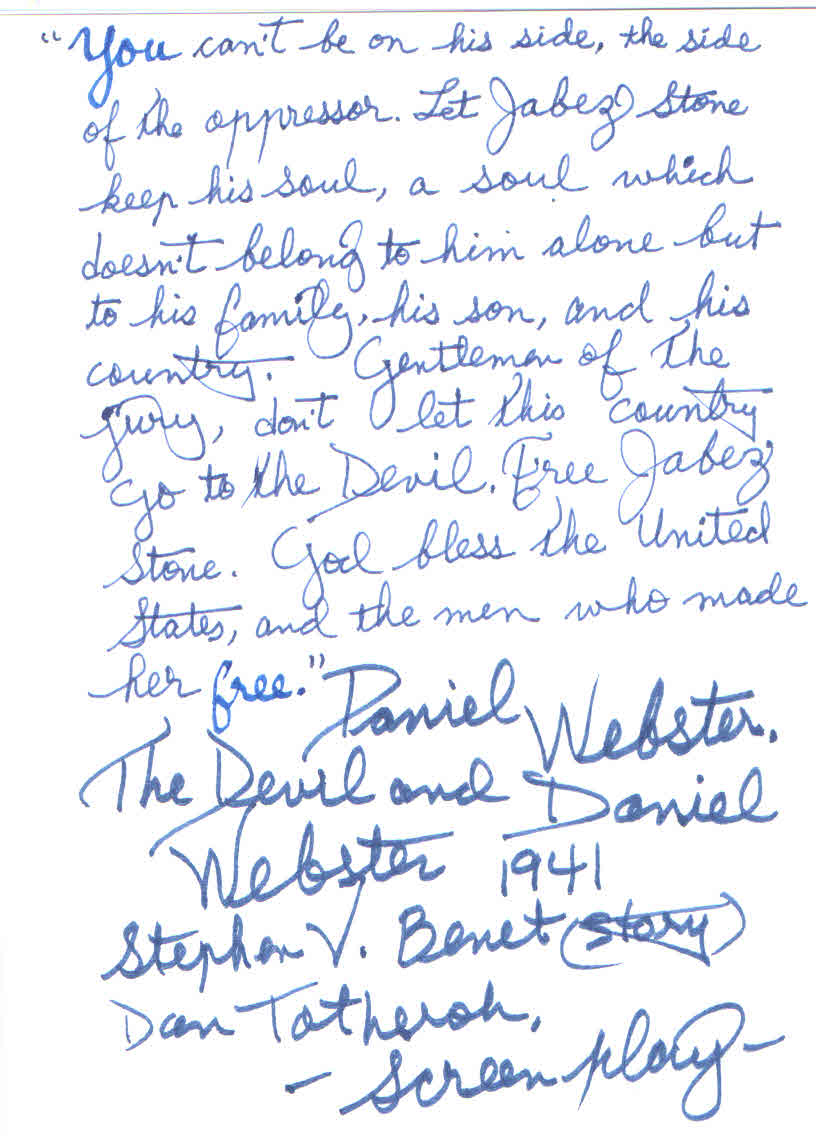 "You can't be on his side, the side
of the oppressor. Let Jabez Stone
keep his soul, a soul which
doesn't belong to him alone but
to his family, his son, and his
country. Gentlemen of the
jury, don't let this country
go to the Devil. Free Jabez
Stone. God bless the United
States, and the men who made
her free." Daniel Webster.
The Devil and Daniel
Webster 1941
Stephen V. Benet (story)
Dan Totheroh,
- Screen play -